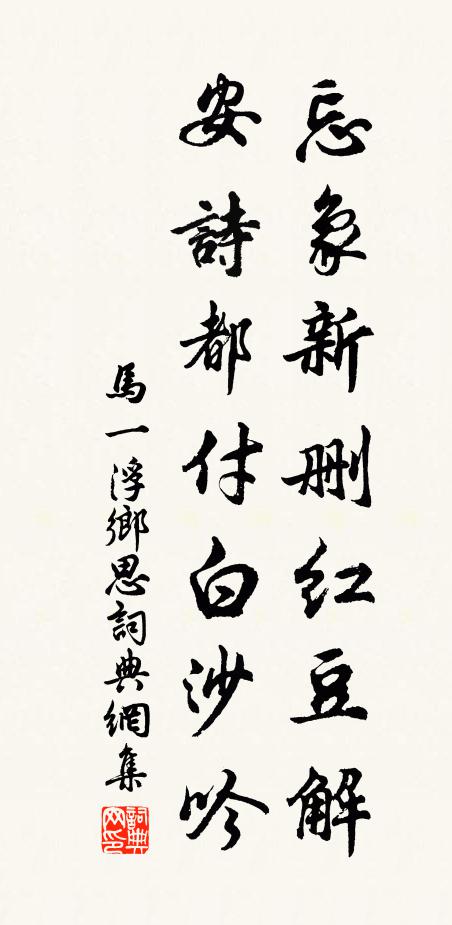 忘象新删红豆解
安詩都付白沙吟
馬一浮鄉思詞典網集
詞典网印